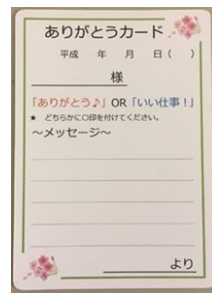 ありがとうカード
平成　　年　　月　　日（　　）
様
「ありがとう♪」OR「いい仕事！」
★　どちらかに○印を付けてください。
～メッセージ～
より